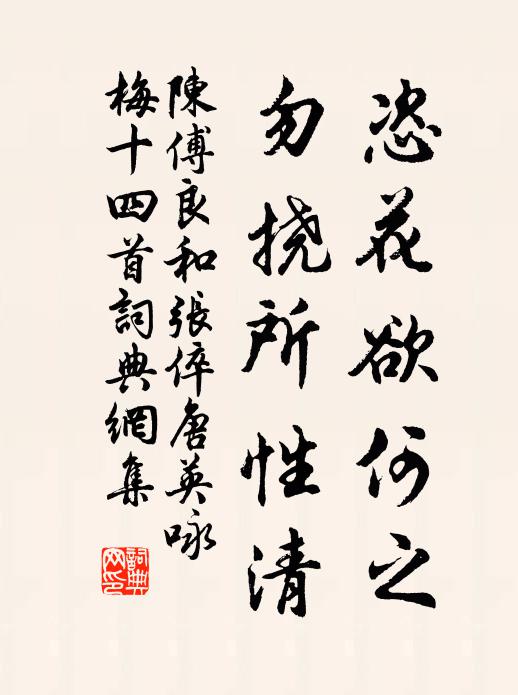 恣花欲何之
勿撓所性清
陳傅良和張倅唐英咏
梅十四首詞典網集
詞典
网印